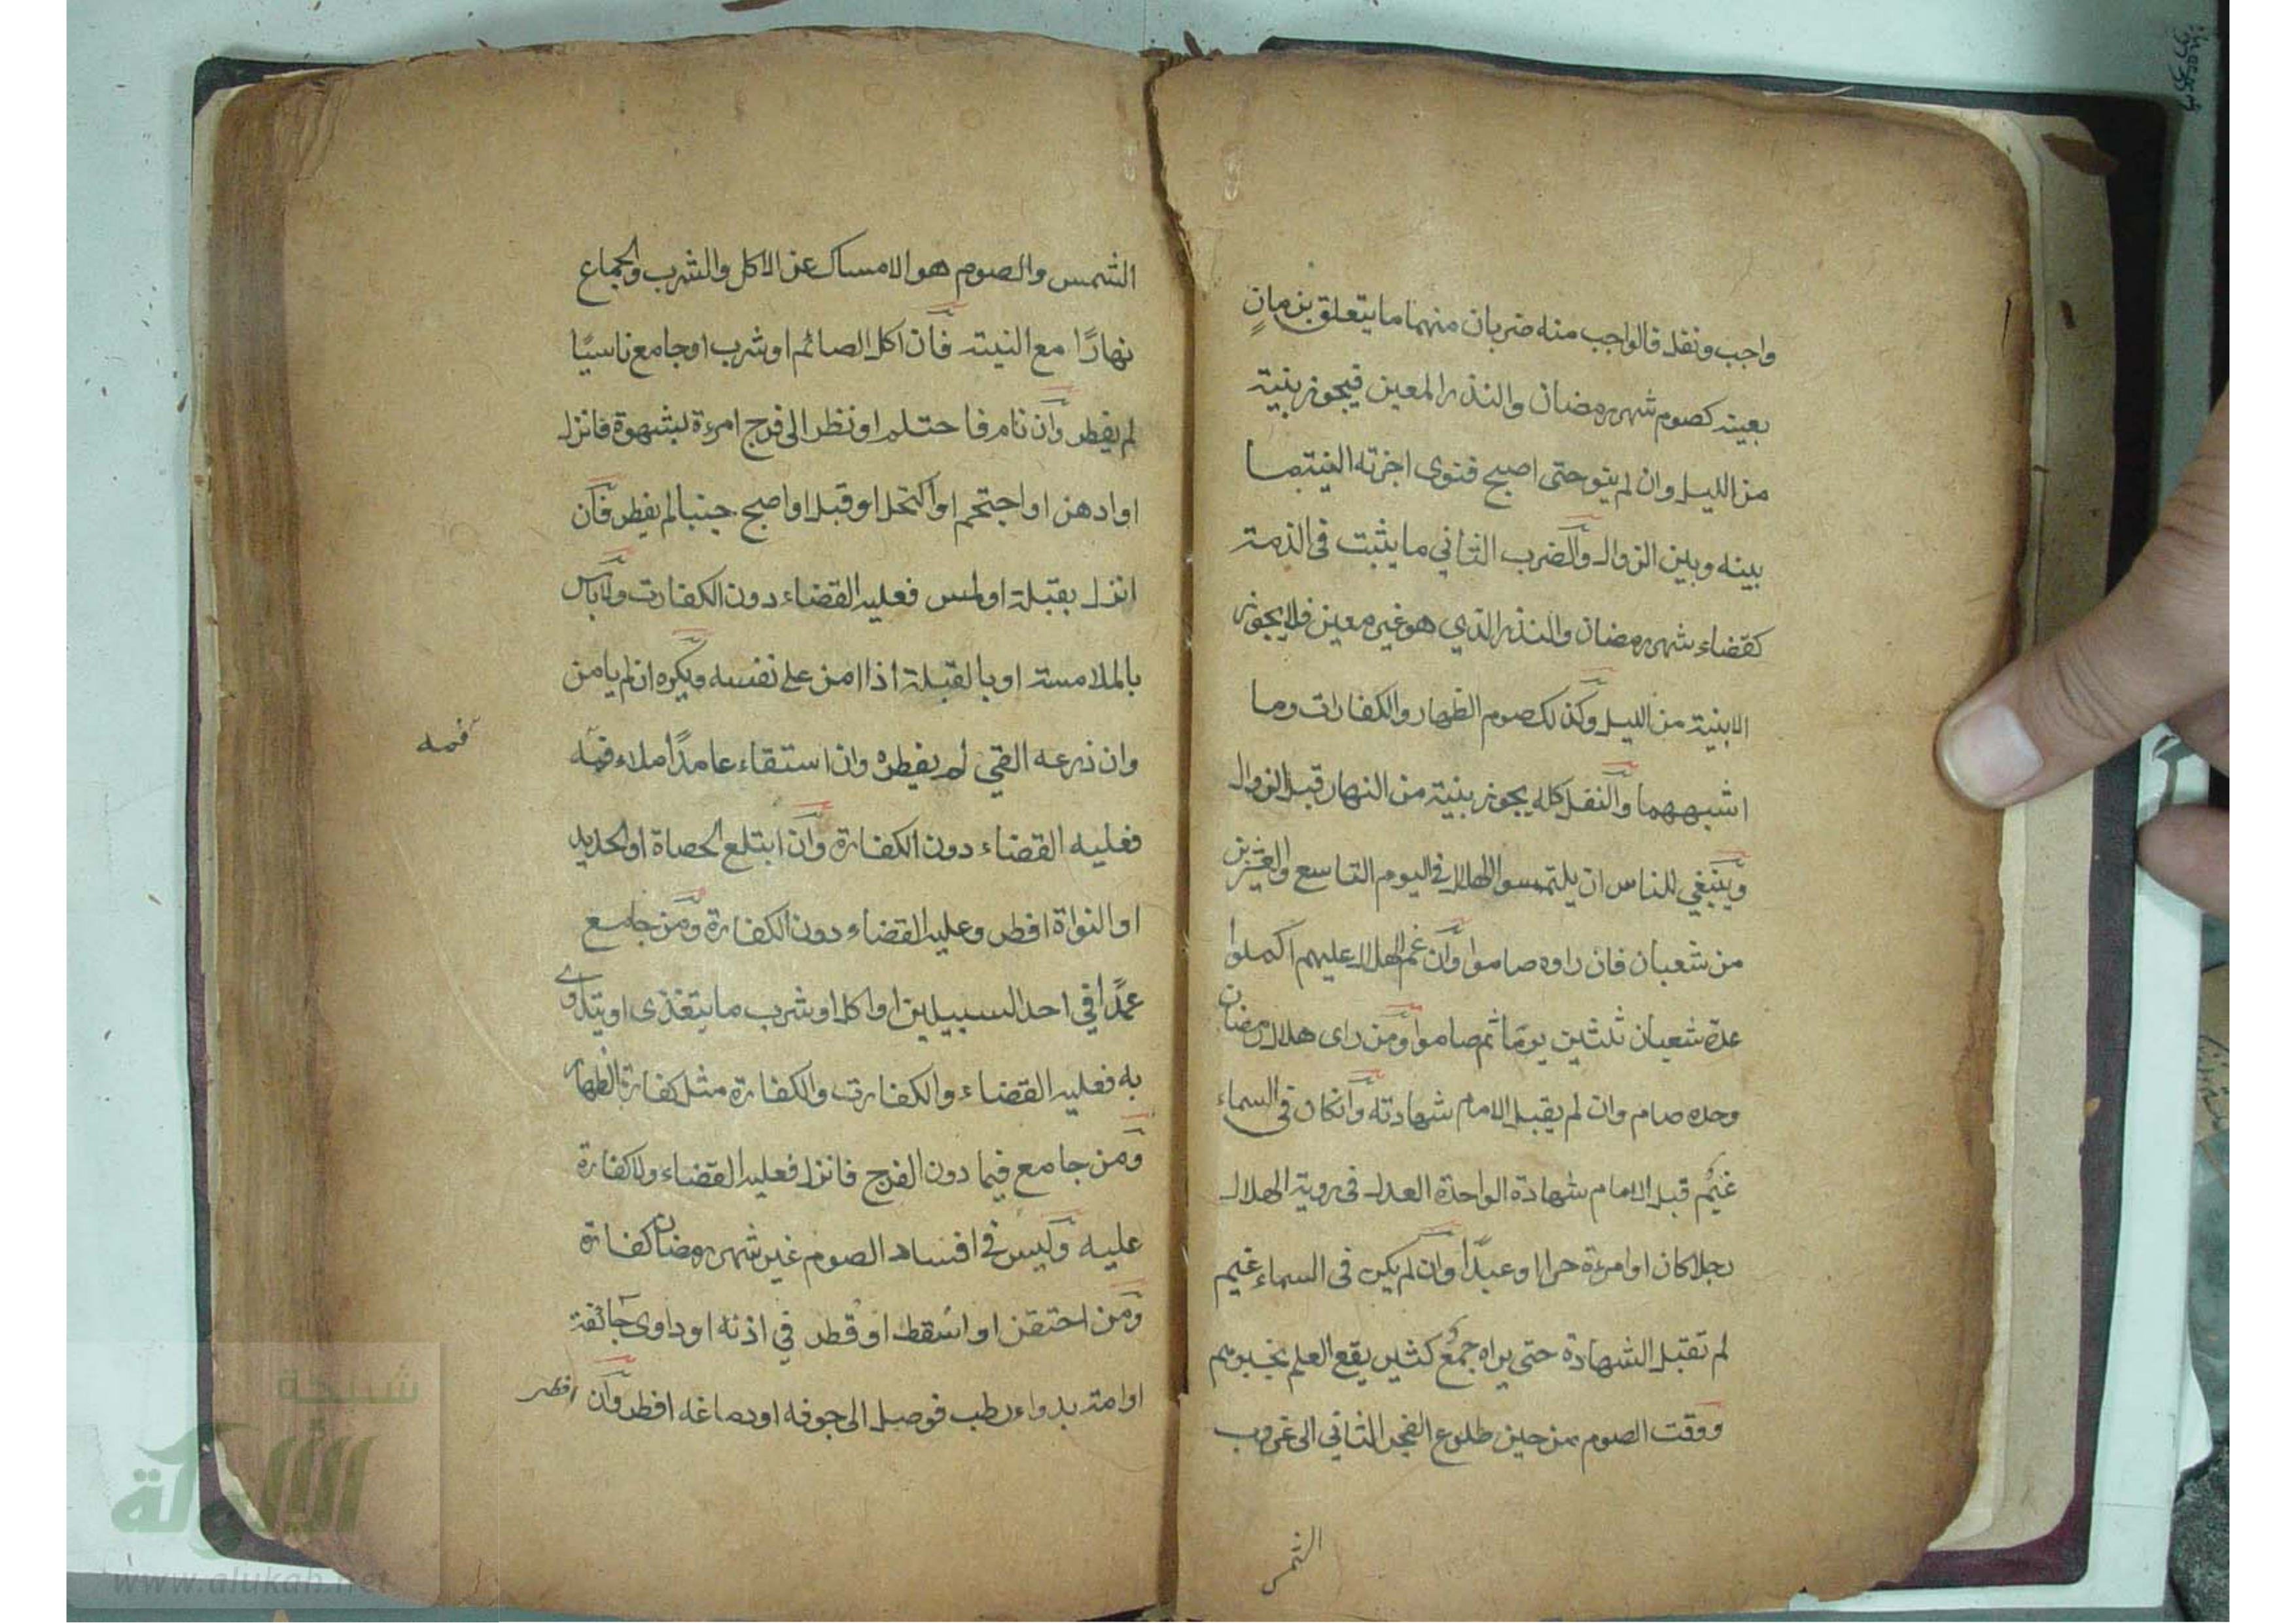 واجب ونفل فالواجب منه ضربان منهما ما يتعلق بزمانٍ
بعينه كصوم شهر رمضان والنذر المعين فيجوز بنية
من الليل وان لم ينو حتى اصبح فنوى اجزته النية ما
بينه وبين الزوال والضرب الثاني ما يثبت فى الذمة
كقضاء شهر رمضان والنذر الذي هو غير معين فلا يجوز
الا بنية من الليل وكذلك صوم الظهار والكفارات وما
اشبههما والنفل كله يجوز بنية من النهار قبل الزوال
وينبغي للناس ان يلتمسوا الهلال في اليوم التاسع والعشرين
من شعبان فان راوه صاموا وان غم الهلال عليهم اكملوا
عدة شعبان ثلثين يومًا ثم صاموا ومن راى هلال رمضان
وحده صام وان لم يقبل الامام شهادته وان كان فى السماء
غيم قبل الامام شهادة الواحدة العدل فى روية الهلال
رجلا كان او امرءة حرا او عبدًا وان لم يكن فى السماء غيم
لم تقبل الشهادة حتى يراه جمع كثير يقع العلم بخبرهم
ووقت الصوم من حين طلوع الفجر الثاني الى غروب
الشمس
الشمس والصوم هو الامساك عن الاكل والشرب والجماع
نهارًا مع النية فان اكل الصائم او شرب او جامع ناسيًا
لم يفطر وان نام فاحتلم او نظر الى فرج امرءة بشهوة فانزل
او ادهن او احتجم او اكتحل او قبل او اصبح جنبا لم يفطر فان
انزل بقبلة او لمس فعليه القضاء دون الكفارت ولا باس
بالملامسة او بالقبلة اذا امن على نفسه ويكره ان لم يامن
وان ذرعه القي لم يفطره وان استقاء عامدًا ملاء فمه
فمه
فعليه القضاء دون الكفارة وان ابتلع الحصاة او الحديد
او النواة افطر وعليه القضاء دون الكفارة ومن جامع
عمدًا في احد السبيلين او اكل او شرب ما يتغذى او يتداوى
به فعليه القضاء والكفارت والكفارة مثل كفارة الظهار
ومن جامع فيما دون الفرج فانزل فعليه القضاء ولا كفارة
عليه وليس في افساد الصوم غير شهر رمضان كفارة
ومن احتقن او اسقط او قطر في اذنه او داوى جائفة
او امة بدواء رطب فوصل الى جوفه او دماغه افطر وان
اقطر
شبكة
الألوكة
www.alukah.net